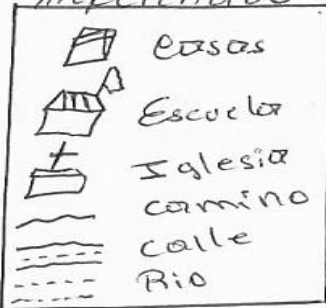 Casas
Escuela
Iglesia
camino
calle
Rio